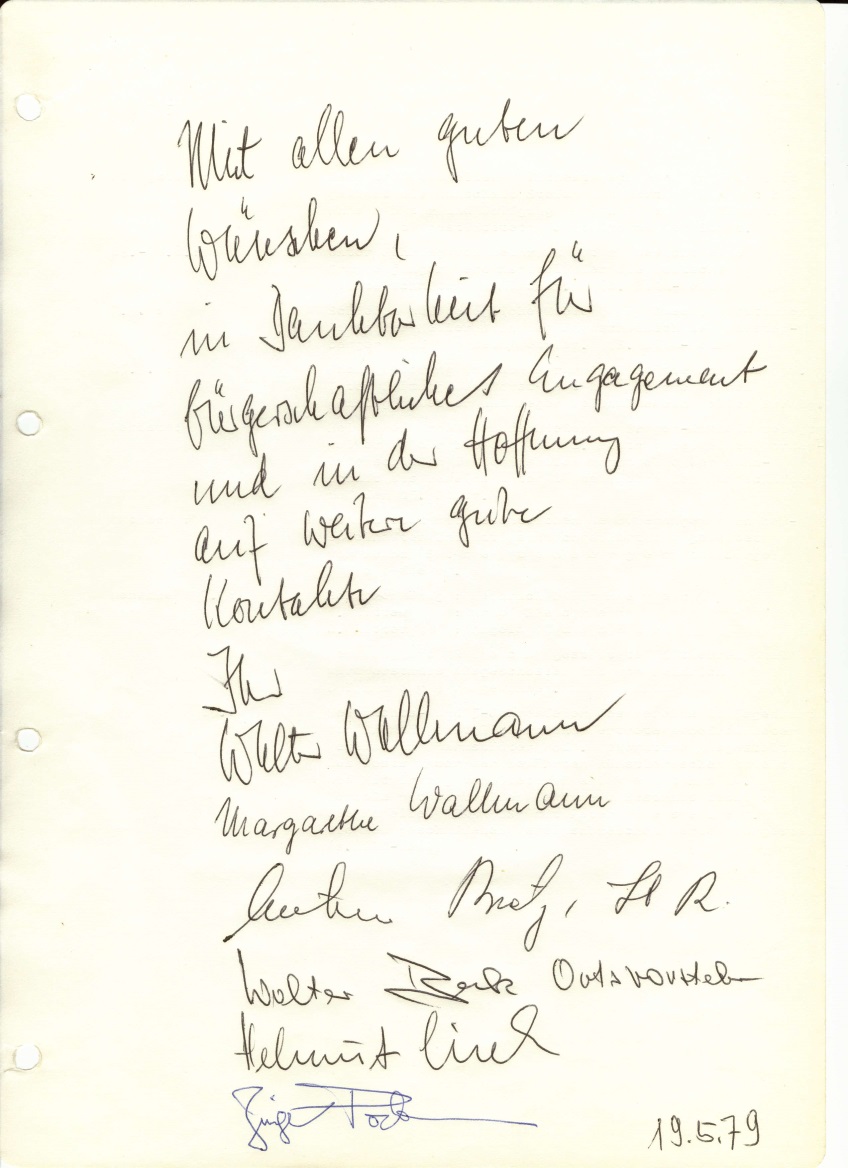 Mit allen guten
Wünschen,
in Dankbarkeit für
bürgerschaftliches Engagement
und in der Hoffnung
auf weitere gute
Kontakte
Ihr
Walter Wallmann
Margarethe Wallmann
St R.
Walter Ortsvorsteher
Helmut
19.5.79